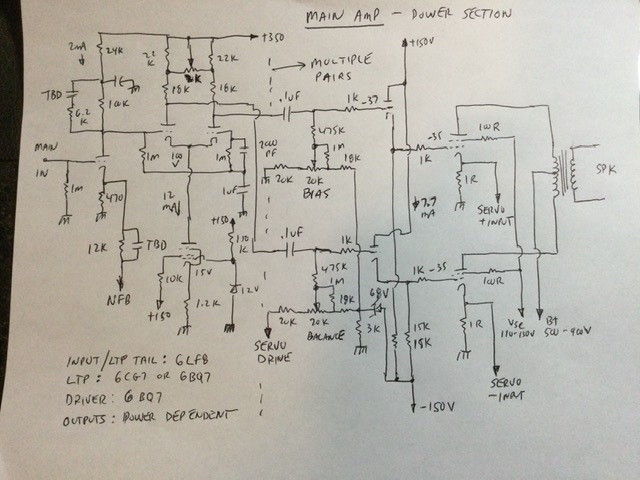 MAIN AMP - POWER SECTION
+350
+150V
2mA
24K
22K
22K
MULTIPLE PAIRS
TBD
18K
18K
.1UF
1K
-37
6.2K
10K
475K
-35
100R
MAIN IN
1M
1M
1M
1K
SPK
470
12 mA
1UF
20K
20K
18K
1R
BIAS
SERVO +INPUT
+150
7.7 mA
12K
TBD
.1UF
1K
15V
10K
475K
1M
1K
-35
100R
NFB
12V
18K
68V
+150
1.2K
20K
20K
BALANCE
3K
15K
18K
1R
VSC
110-150V
B+
500-900V
SERVO DRIVE
SERVO -INPUT
-150V
INPUT/LTP TAIL: 6LF8
LTP: 6CG7 OR 6BQ7
DRIVER: 6BQ7
OUTPUTS: POWER DEPENDENT